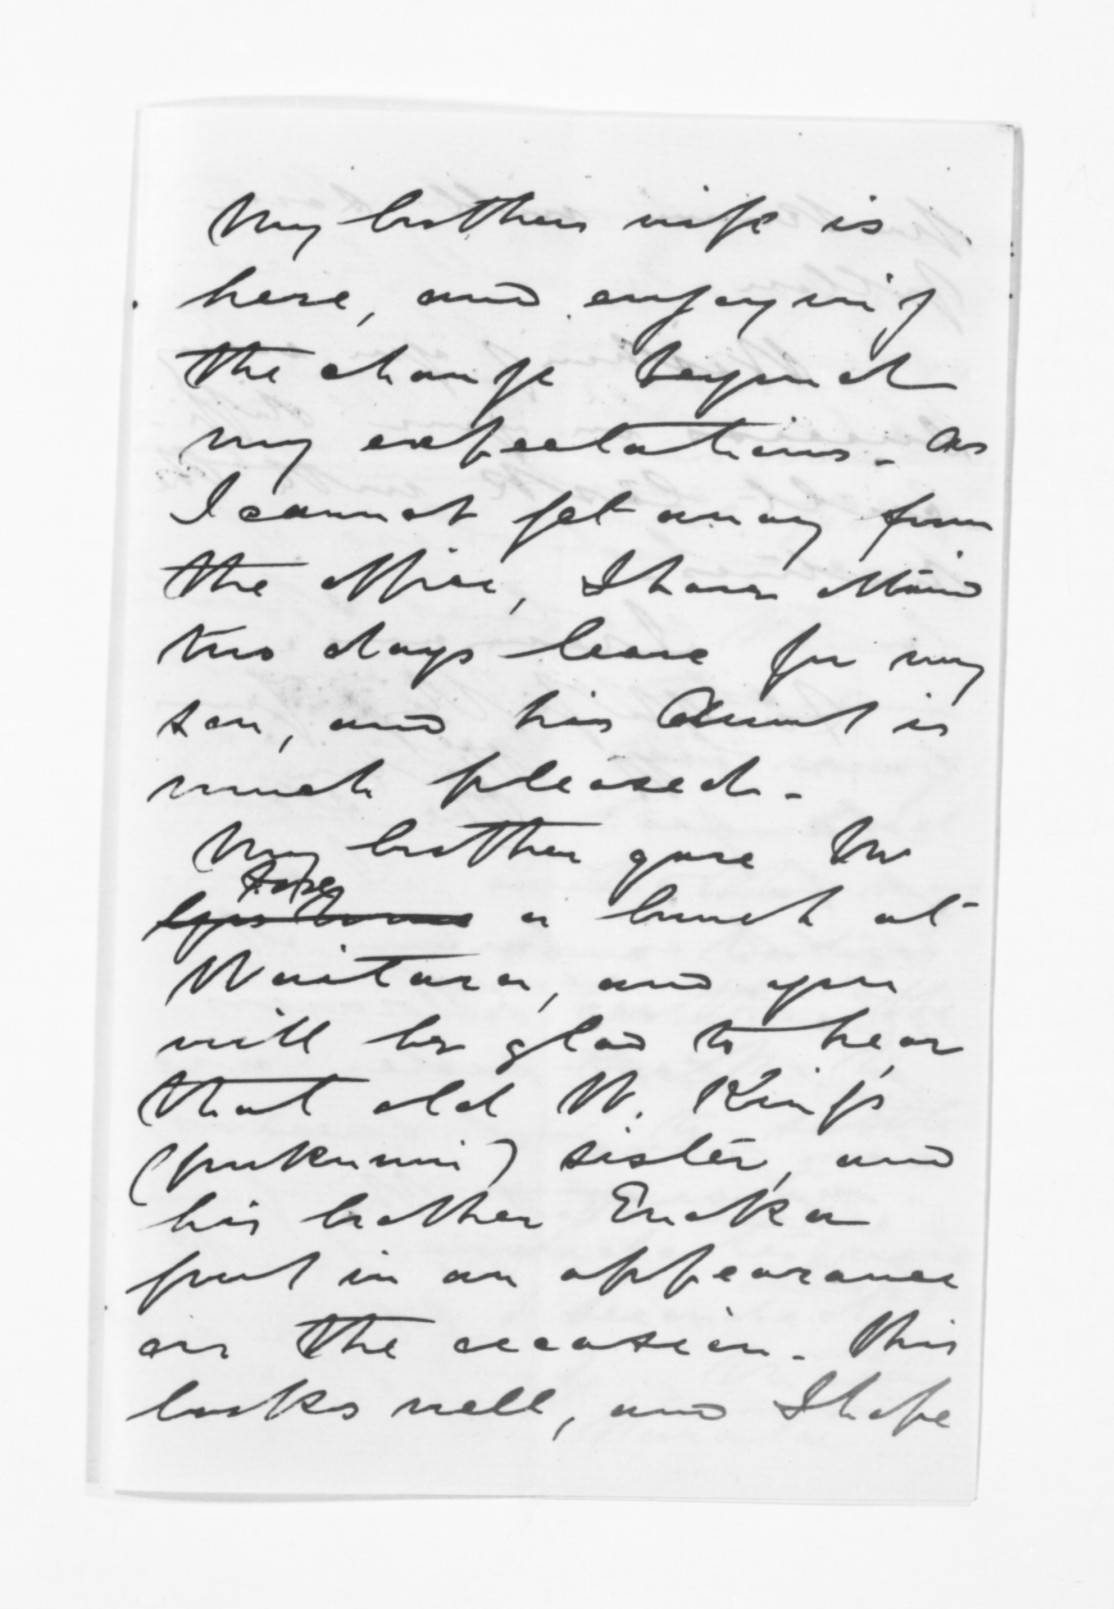 My brothers wife is
here, and enjoying
the change beyond
my expectations. As
I cannot get away from
the office, I have obtaind
two days leave for my
son, and his Aunt is
much pleased.
My brother gave Mr
a lunch at
Waitara, and you
will be glad to hear
that old W. King's
sister, and
his brother Eruka
put in an appearance
on the occasion. This
looks well, and I hope